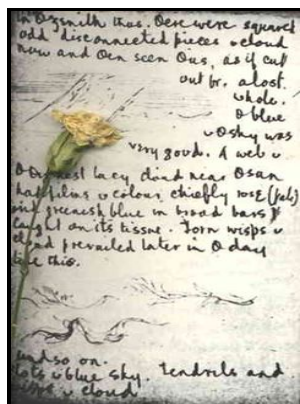 in Ozenith thus. Oere were squared
odd disconnected pieces v cloud
now and Oen seen Ous, as if cut
out fr. a lost
whole.
O blue
v O sky was
very good. A web v
lacy cloud near O sun
had v colour, chiefly rose (pale)
and greenish blue in broad bars
caught on its tissue. Torn wisps v
cloud prevailed later in O day
like this.
and so on.
lots v blue sky. Tendrils and
v cloud